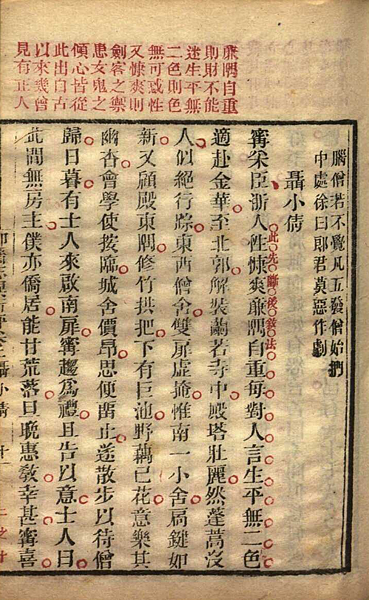 廉隅自重
則財不能
迷生平無
二色則色
無可惑性
又慷爽則
劍客之禦
患女鬼之
傾心皆從
此出自古
以來幾曾
見有正人
腦僧若不覺凡五發僧始捫
中處徐曰郎君莫惡作劇
聶小倩
甯采臣浙人性慷爽廉隅自重每對人言生平無二色
此先斷後敘法
適赴金華至北郭解裝蘭若寺中殿塔壯麗然蓬蒿沒
人似絕行踪東西僧舍雙扉虛掩惟南一小舍扃鍵如
新又顧殿東隅修竹拱把下有巨池野藕已花意樂其
幽杳會學使按臨城舍價昂思便留止遂散步以待僧
歸日暮有士人來啟南扉甯趨為禮且告以意士人曰
此間無房主僕亦僑居能甘荒落旦晚惠教幸甚甯喜
聶小倩